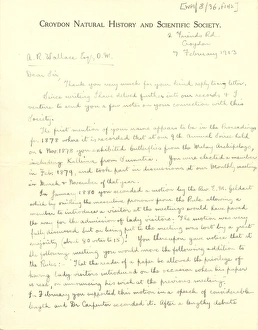 [WP1/8/36, f.142]
CROYDON NATURAL HISTORY AND SCIENTIFIC SOCIETY.
2 Friends Rd.
Croydon
9 February 1913
A. R. Wallace Esq., O.M.
Dear Sir,
Thank you very much for your kind reply to my letter.
Since writing I have delved further into our records & I
venture to send you a few notes on your connection with this
Society.
The first mention of your name appears to be in the Proceedings
for 1878 where it is recorded that at our 9th Annual Soirée held
on 6 Nov 1878 you exhibited butterflies from the Malay Archipelago,
including Kallima from Sumatra. You were elected a member
in Feb. 1879, and took part in discussions at our Monthly meetings
in March & November of that year.
In January 1880 you seconded a motion by the Rev. E. M. Geldart
while by omitting the masculine pronoun from the Rule allowing a
member to introduce a visitor at the meetings would have paved
the way for the admission of lady visitors. The motion was very
fully discussed but on being put to the meeting was lost by a great
majority (about 40 votes to 15). You thereupon gave notice that at
the following meeting you would move the following addition to
the Rules:- That the reader of a paper be allowed the privilege of
having lady visitors introduced on the occasion when his paper
is read, on announcing his wish at the previous meeting.
In February you supported this motion in a speech of considerable
length and Dr Carpenter seconded it. After a lengthy debate